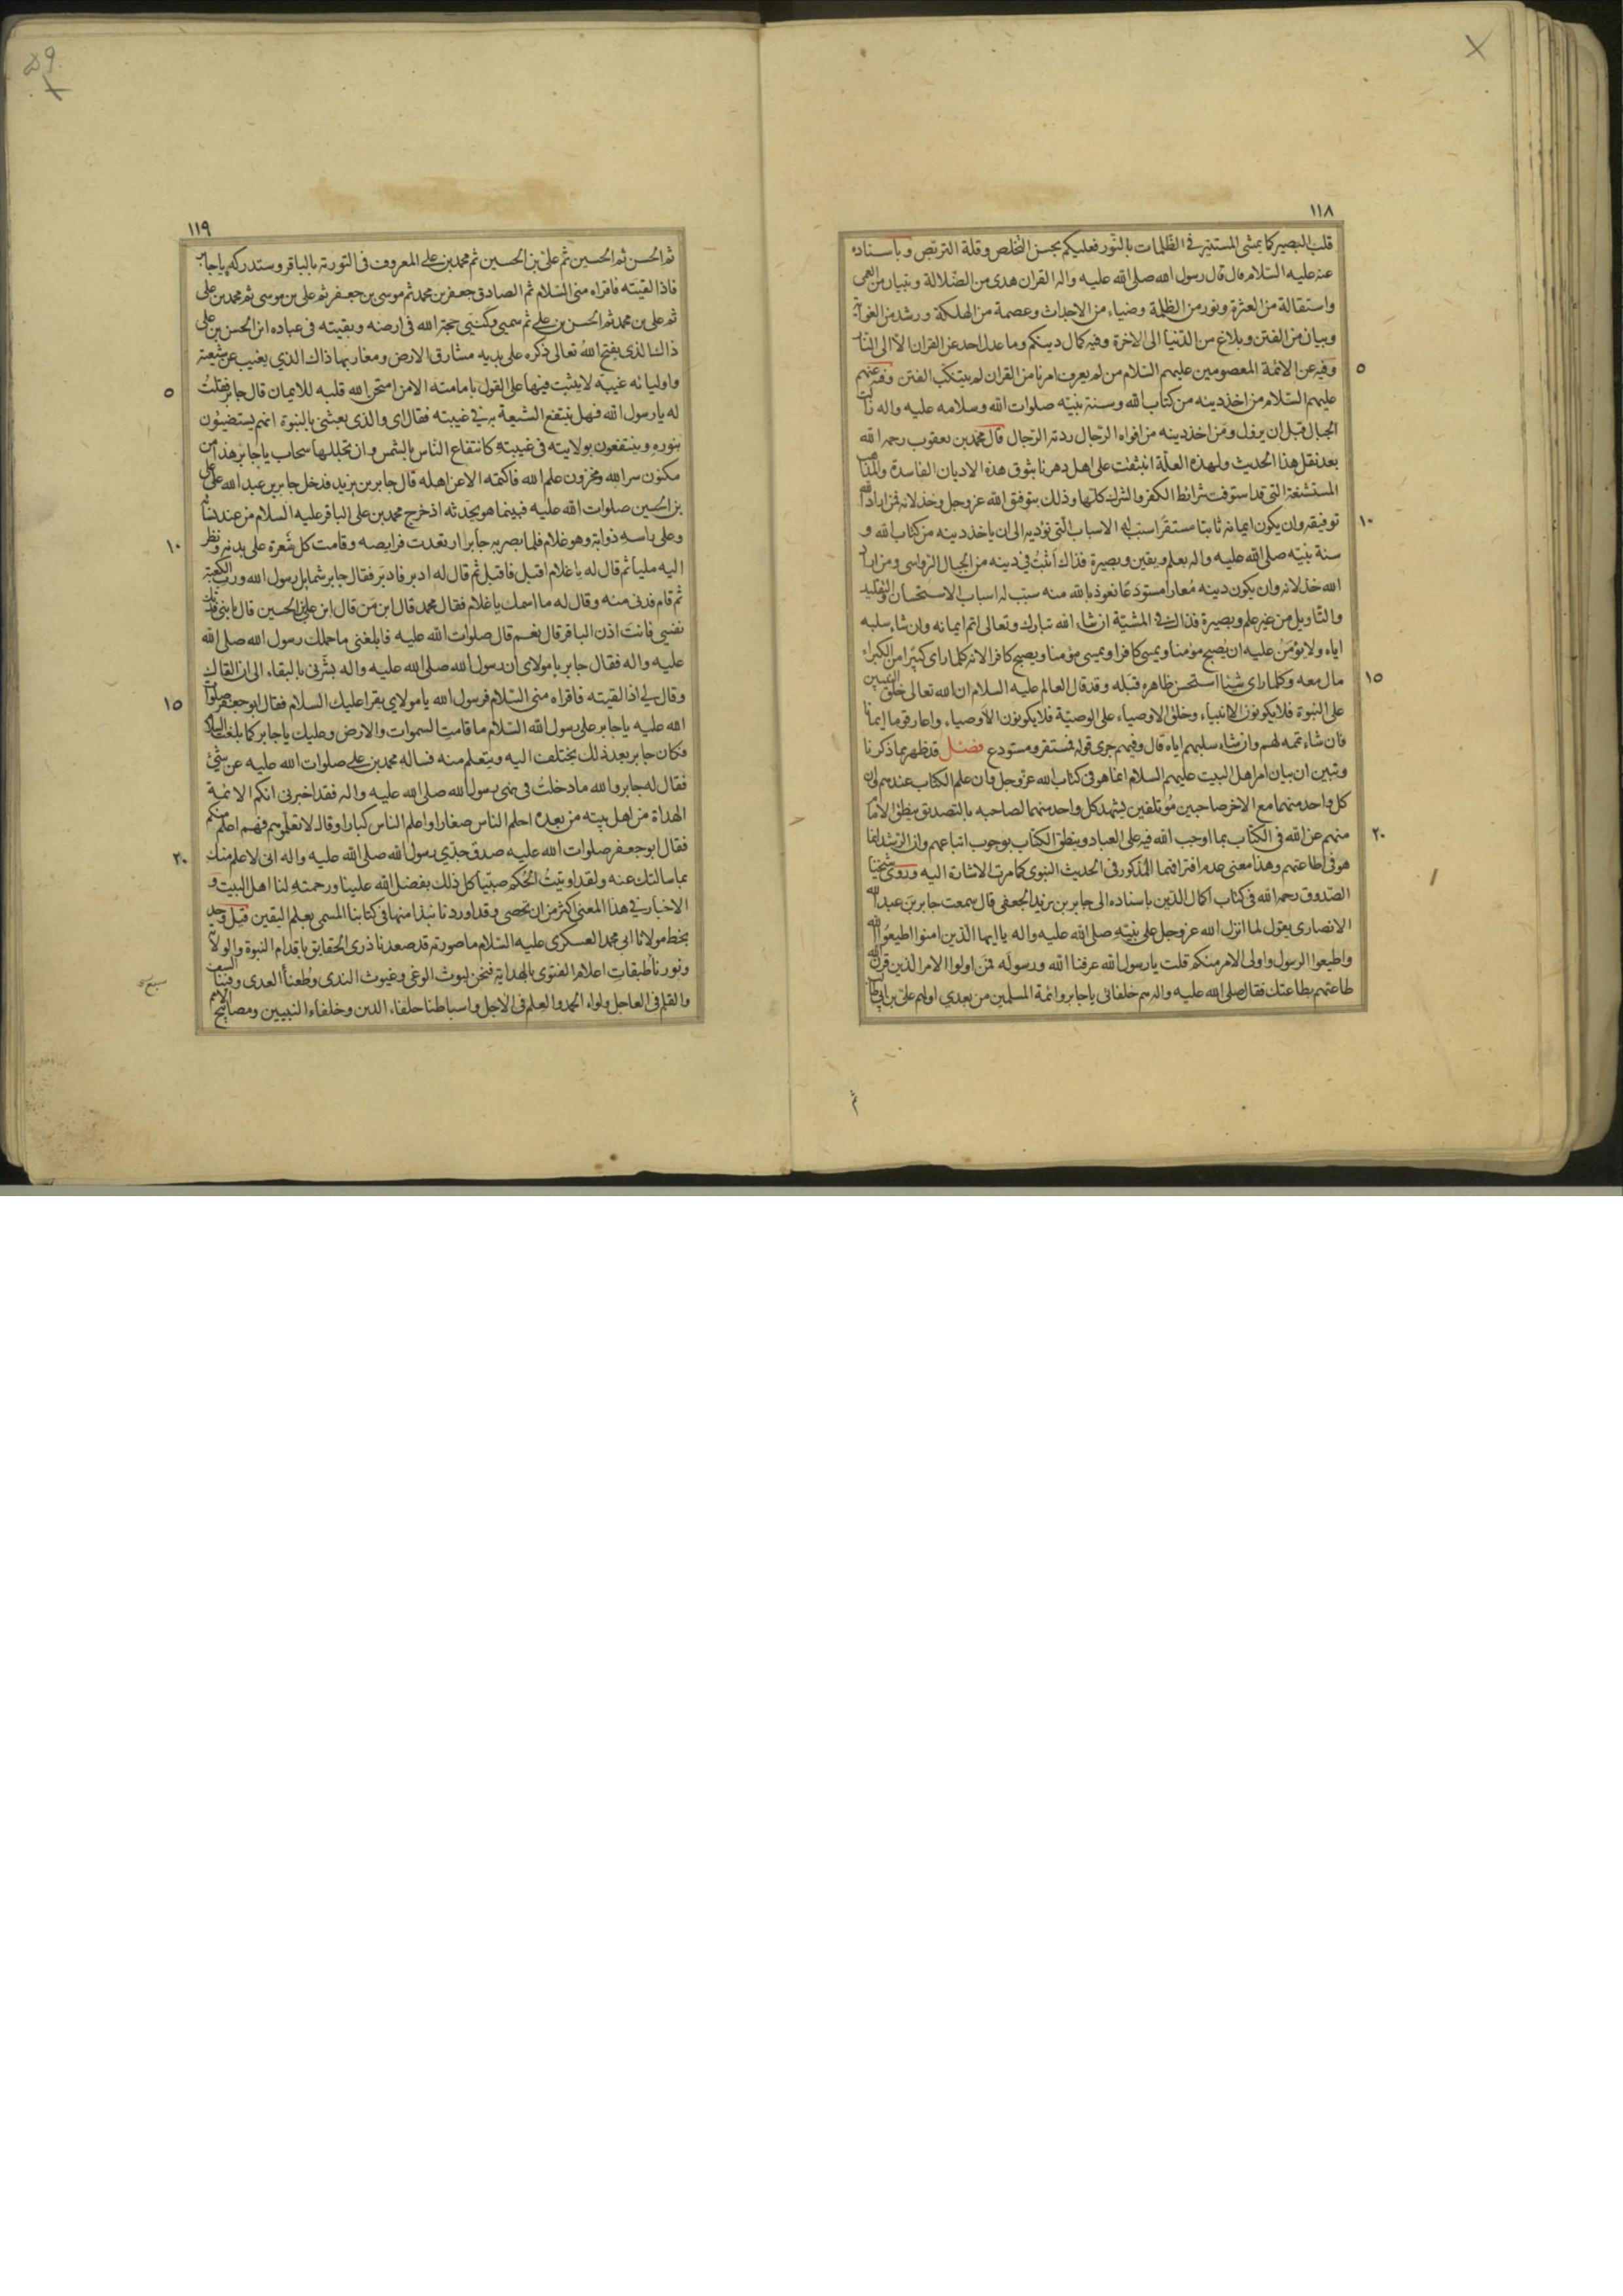 ١١٨
قلب البصير كما يمشى المستنير فى الظلمات بالنّور فعليكم بحسن التخلص وقلة التربّص وباسناده
عنه عليه السّلام قال قال رسول الله صلى الله عليه واله القران هدى من الضّلالة وتبيان من العمى
واستقالة من العثرة ونور من الظلمة وضياء من الاحداث وعصمة من الهلكة ورشد من الغواية
وبيان من الفتن وبلاغ من الدّنيا الى الاخرة وفيه كمال دينكم وما عدل احد عن القران الا الى النار
٥
وفيه عن الائمة المعصومين عليهم السّلام من لم يعرف امرنا من القران لم يتنكّب الفتن وفيه عنهم
عليهم السّلام من اخذ دينه من كتاب الله وسنة نبيّه صلوات الله وسلامه عليه واله زالت
الجبال قبل ان يزول ومن اخذ دينه من افواه الرّجال ردته الرّجال قال محمد بن يعقوب رحمه الله
بعد نقل هذا الحديث ولهذه العلّة انبثقت على اهل دهرنا بثوق هذه الاديان الفاسدة والمذاهب
المستشنعة التى قد استوفت شرائط الكفر والشرك كلّها وذلك بتوفيق الله عز وجل وخذلانه فمن اراد الله
١٠
توفيقه وان يكون ايمانه ثابتا مستقرّا سبّب له الاسباب الّتى تؤديه الى ان ياخذ دينه من كتاب الله و
سنة نبيّه صلى الله عليه واله بعلم ويقين وبصيرة فذاك اثبتُ فى دينه من الجبال الرّواسى ومن اراد
الله خذلانه وان يكون دينه مُعارا مستودعًا نعوذ بالله منه سبّب له اسباب الاستحسان والتقليد
والتّاويل من غير علم وبصيرة فذاك فى المشيّة ان شاء الله تبارك وتعالى اتم ايمانه وان شاء سلبه
اياه ولا يؤمَنُ عليه ان يُصبح مؤمنا ويمسى كافرا ويمسى مؤمنا ويصبح كافرا لانه كلما راى كبيرا من الكبراء
١٥
مال معه وكلما راى شيئا استحسن ظاهره قبله وقد قال العالم عليه السلام ان الله تعالى خلق النبيين
على النبوة فلا يكونون الا انبياء وخلق الاوصياء على الوصيّة فلا يكونون الا اوصياء واعار قوما ايمانا
فان شاء تمه لهم وان شاء سلبهم اياه قال وفيهم جرى قوله فمستقر ومستودع فصل قد ظهر بما ذكرنا
وتبين ان بيان امر اهل البيت عليهم السلام انما هو فى كتاب الله عز وجل وان علم الكتاب عندهم وان
كل واحد منهما مع الاخر صاحبين مؤتلفين يشهد كل واحد منهما لصاحبه بالتصديق ينطق الامام
٢٠
منهم عن الله فى الكتاب بما اوجب الله فيه على العباد وينطق الكتاب بوجوب اتباعهم وان الرشد انما
هو فى اطاعتهم وهذا معنى عدم افتراقهما المذكور فى الحديث النبوى كما مرت الاشارة اليه وروى شيخنا
الصّدوق رحمه الله فى كتاب اكمال الدّين باسناده الى جابر بن يزيد الجعفى قال سمعت جابر بن عبد الله
الانصارى يقول لما انزل الله عز وجل على نبيّه صلى الله عليه واله يا ايها الذين امنوا اطيعوا الله
واطيعوا الرسول واولى الامر منكم قلت يا رسول الله عرفنا الله ورسوله فمن اولوا الامر الذين قرن الله
طاعتهم بطاعتك فقال صلى الله عليه واله هم خلفائى يا جابر وائمة المسلمين من بعدي اولهم على بن ابى طالب
ثم
١١٩
ثم الحسن ثم الحسين ثم على بن الحسين ثم محمد بن على المعروف فى التورية بالباقر وستدركه يا جابر
فاذا لقيته فاقراه منى السّلام ثم الصادق جعفر بن محمد ثم موسى بن جعفر ثم على بن موسى ثم محمد بن على
ثم على بن محمد ثم الحسن بن على ثم سميى وكنيى حجة الله فى ارضه وبقيته فى عباده ابن الحسن بن على
ذاك الذى يفتح الله تعالى ذكره على يديه مشارق الارض ومغاربها ذاك الذي يغيب عن شيعته
٥
واوليائه غيبة لا يثبت فيها على القول بامامته الا من امتحن الله قلبه للايمان قال جابر فقلتُ
له يا رسول الله فهل ينتفع الشيعة به فى غيبته فقال اى والذى بعثنى بالنبوة انهم يستضيئون
بنوره وينتفعون بولايته فى غيبته كانتفاع النّاس بالشمس وان تجللها سحاب يا جابر هذا من
مكنون سر الله ومخزون علم الله فاكتمه الا عن اهله قال جابر بن يزيد فدخل جابر بن عبد الله على على
بن الحسين صلوات الله عليه فبينما هو يحدثه اذ خرج محمد بن على الباقر عليه السلام من عند نسائه
١٠
وعلى راسه ذوابة وهو غلام فلما بصر به جابر ارتعدت فرايصه وقامت كل شعرة على بدنه ونظر
اليه مليا ثم قال له يا غلام اقبل فاقبل ثم قال له ادبر فادبر فقال جابر شمايل رسول الله ورب الكعبة
ثم قام فدنى منه وقال له ما اسمك يا غلام فقال محمد قال ابن مَن قال ابن على بن الحسين قال يا بنى فدتك
نفسى فانتَ اذن الباقر قال نعم قال صلوات الله عليه فابلغنى ما حملك رسول الله صلى الله
عليه واله فقال جابر يا مولاى ان رسول الله صلى الله عليه واله بشّرنى بالبقاء الى ان القاك
١٥
وقال لى اذا لقيته فاقراه منى السّلام فرسول الله يا مولاي يقرا عليك السلام فقال ابو جعفر صلوات
الله عليه يا جابر على رسول الله السّلام ما قامت السموات والارض وعليك يا جابر كما بلغت السلام
فكان جابر بعد ذلك يختلف اليه ويتعلم منه فساله محمد بن على صلوات الله عليه عن شئ
فقال له جابر والله ما دخلتُ فى نهى رسول الله صلى الله عليه واله فقد اخبرنى انكم الائمة
الهداة من اهل بيته من بعده احلم الناس صغارا واعلم الناس كبارا وقال لا تعلّموهم فهم اعلم منكم
٢٠
فقال ابو جعفر صلوات الله عليه صدق جدّي رسول الله صلى الله عليه واله انى لاعلم منك
بما سالتك عنه ولقد اوتيتُ الحُكم صبيّا كل ذلك بفضل الله علينا ورحمته لنا اهل البيت و
الاخبار فى هذا المعنى اكثر من ان تحصى وقد اوردنا نبذا منها فى كتابنا المسمى بعلم اليقين قيل وجد
بخط مولانا ابى محمد العسكرى عليه السّلام ما صورته قد صعدنا ذرى الحقايق باقدام النبوة والولاية
ونورنا طبقات اعلام الفتوى بالهداية فنحن ليوث الوغى وغيوث الندى وطعناء العدى وفينا السيف
والقلم فى العاجل ولواء الحمد والعلم فى الاجل واسباطنا حلفاء الدين وخلفاء النبيين ومصابيح الامم